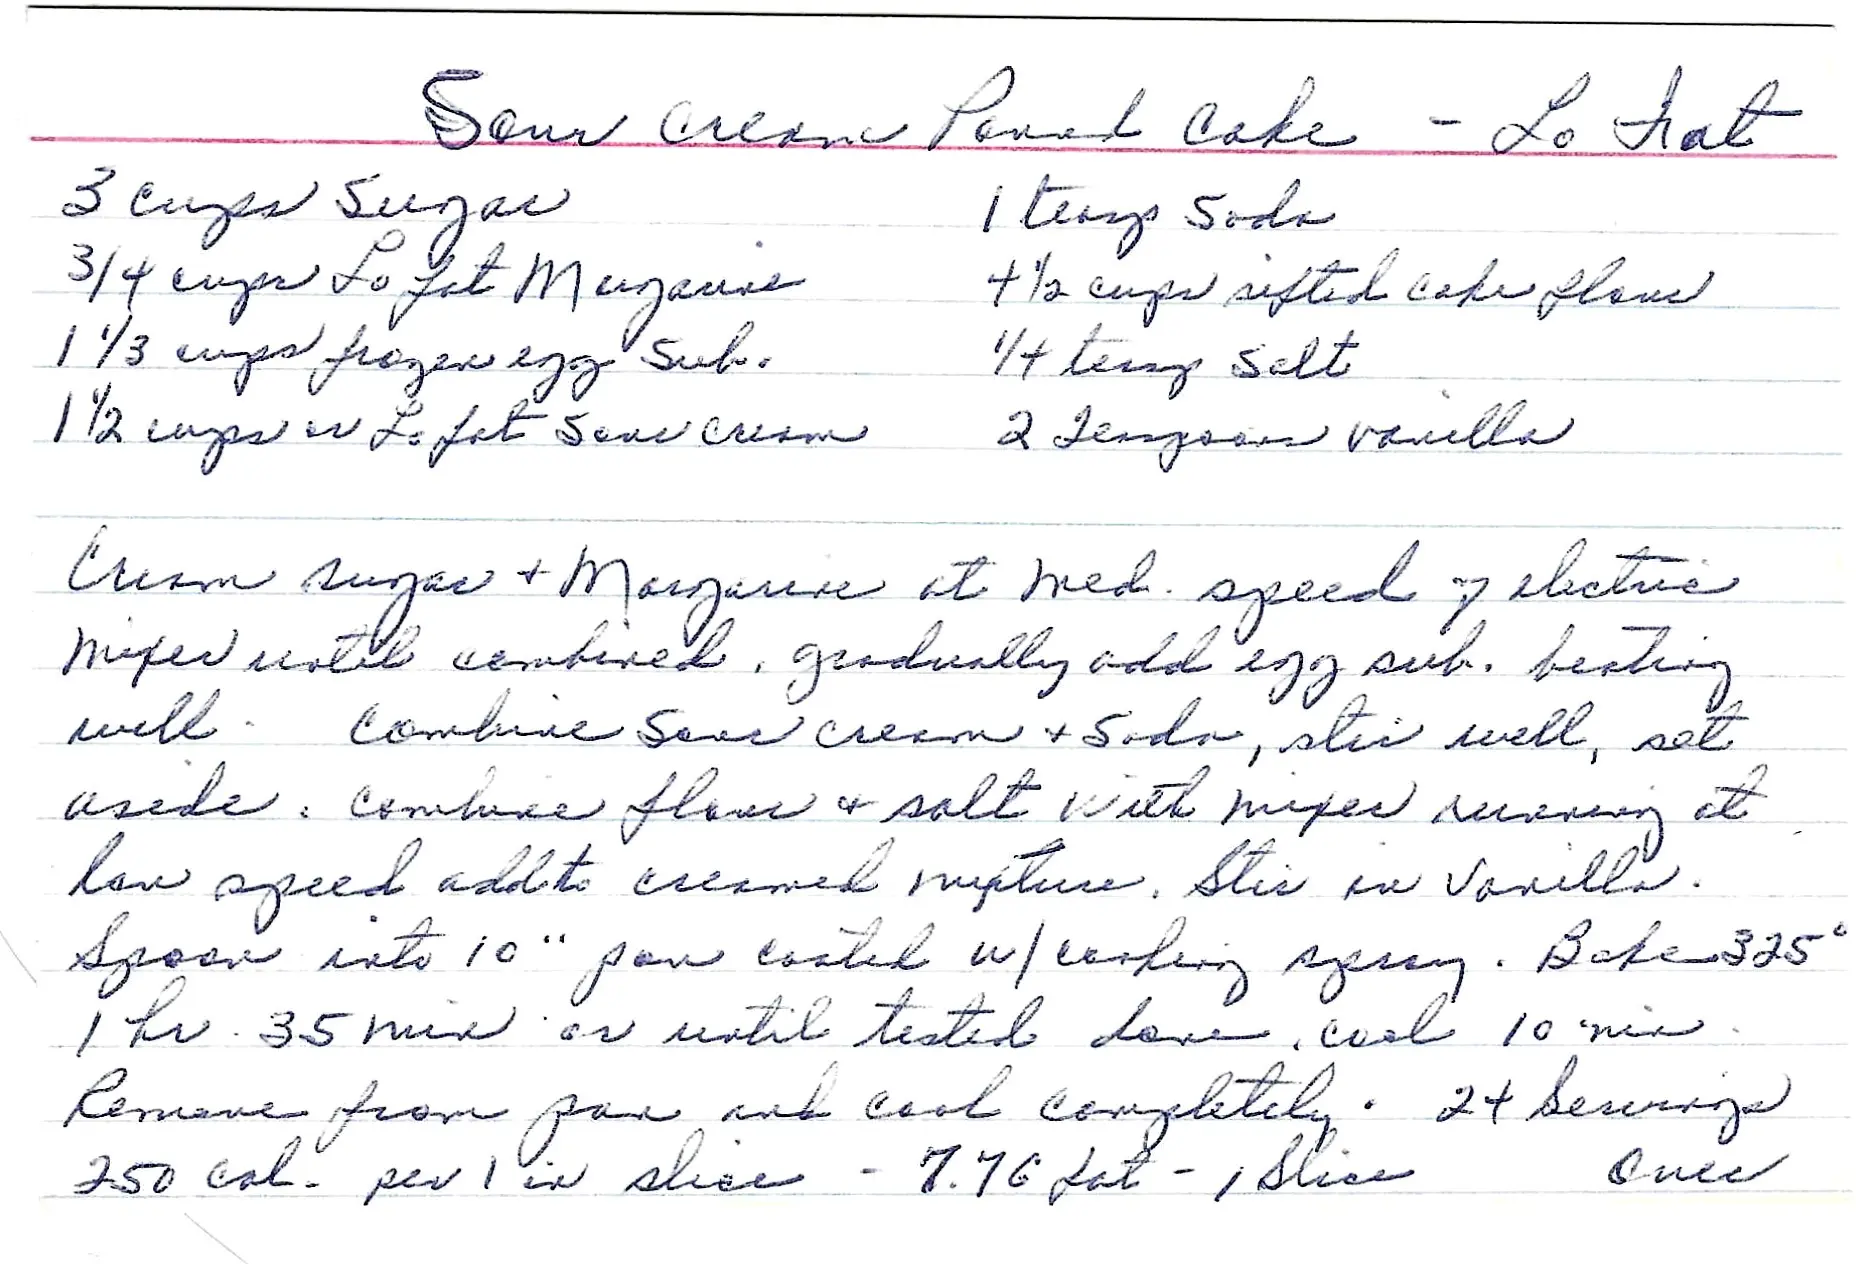 Sour Cream Pound Cake - Lo Fat
3 cups Sugar
3/4 cups Lo fat Margarine
1 1/3 cups frozen egg Sub.
1 1/2 cups or Lo fat Sour cream
1 teasp Soda
4 1/2 cups sifted cake flour
1/4 teasp Salt
2 Teaspoons vanilla
Cream sugar + Margarine at med. speed of electric
mixer until combined. gradually add egg sub. beating
well. Combine Sour cream + Soda, stir well, set
aside. Combine flour + salt with mixer running at
low speed add to creamed mixture. Stir in Vanilla.
Spoon into 10" pan coated w/ cooking spray. Bake 325°
1 hr. 35 min or until tested done. cool 10 min.
Remove from pan and cool completely. 24 Servings
250 cal. per 1 in slice - 7.7G fat - 1 Slice Over